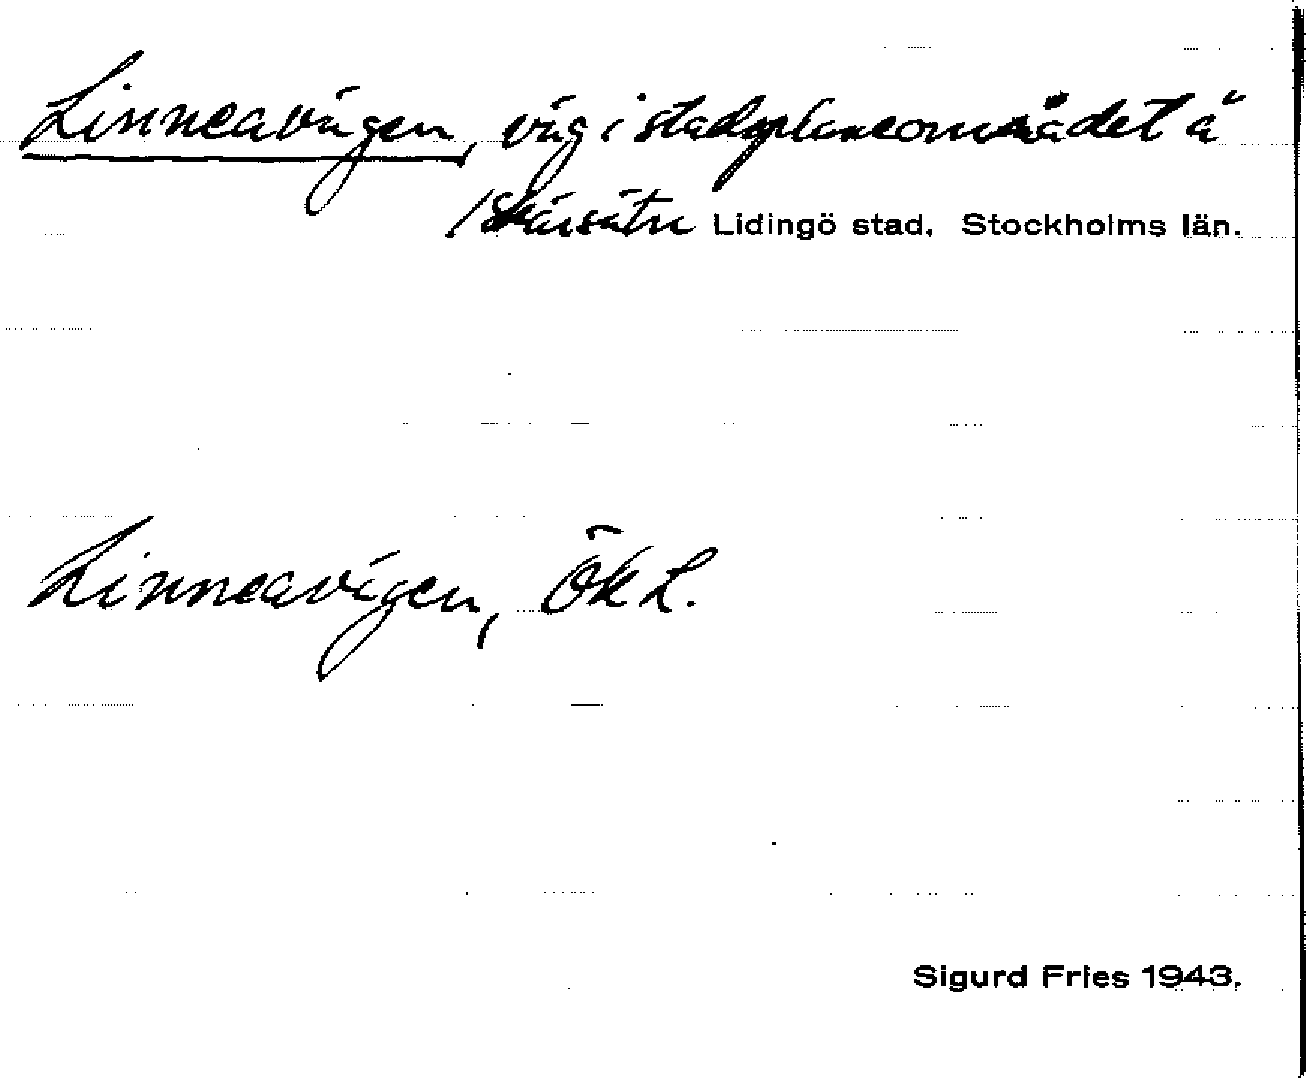 Linneavägen, väg i stadsplaneområdet å
/Skärsätra Lidingö stad, Stockholms län.
Linneavägen, ÖK L.
Sigurd Fries 1943.